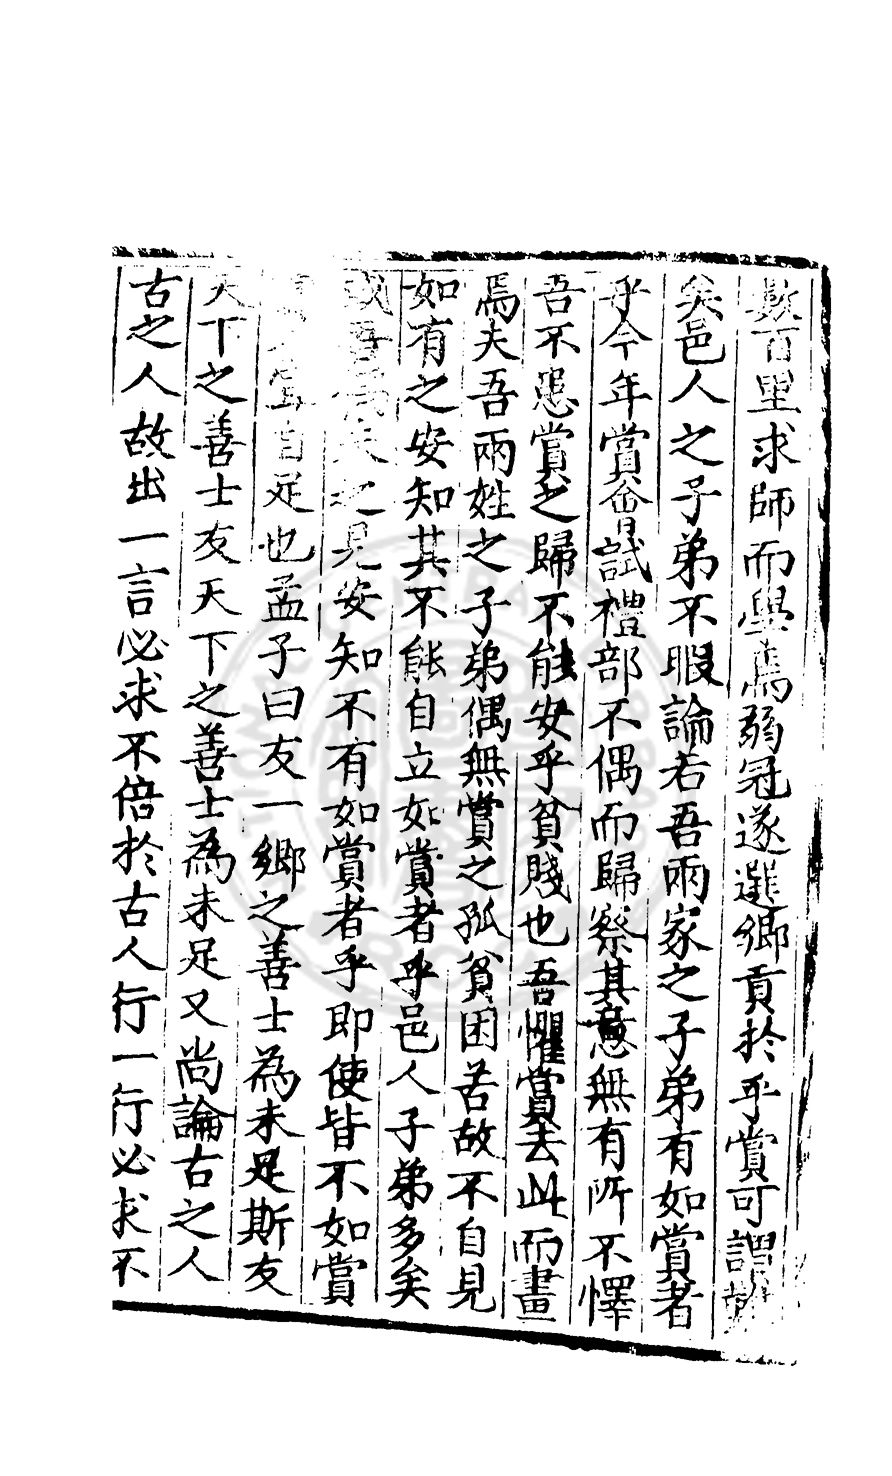 數百里求師而學焉弱冠遂選鄉貢於乎賞可謂
矣邑人之子弟不暇論若吾兩家之子弟有如賞者
乎今年賞會試禮部不偶而歸察其意無有所不懌
吾不患賞之歸不能安乎貧賤也吾懼賞去此而畫
焉夫吾兩姓之子弟偶無賞之孤貧困苦故不自見
如有之安知其不能自立如賞者乎邑人子弟多矣
吾 之見安知不有如賞者乎即使皆不如賞
自足也孟子曰友一鄉之善士為未足斯友
天下之善士友天下之善士為未足又尚論古之人
古之人故出一言必求不倍於古人行一行必求不